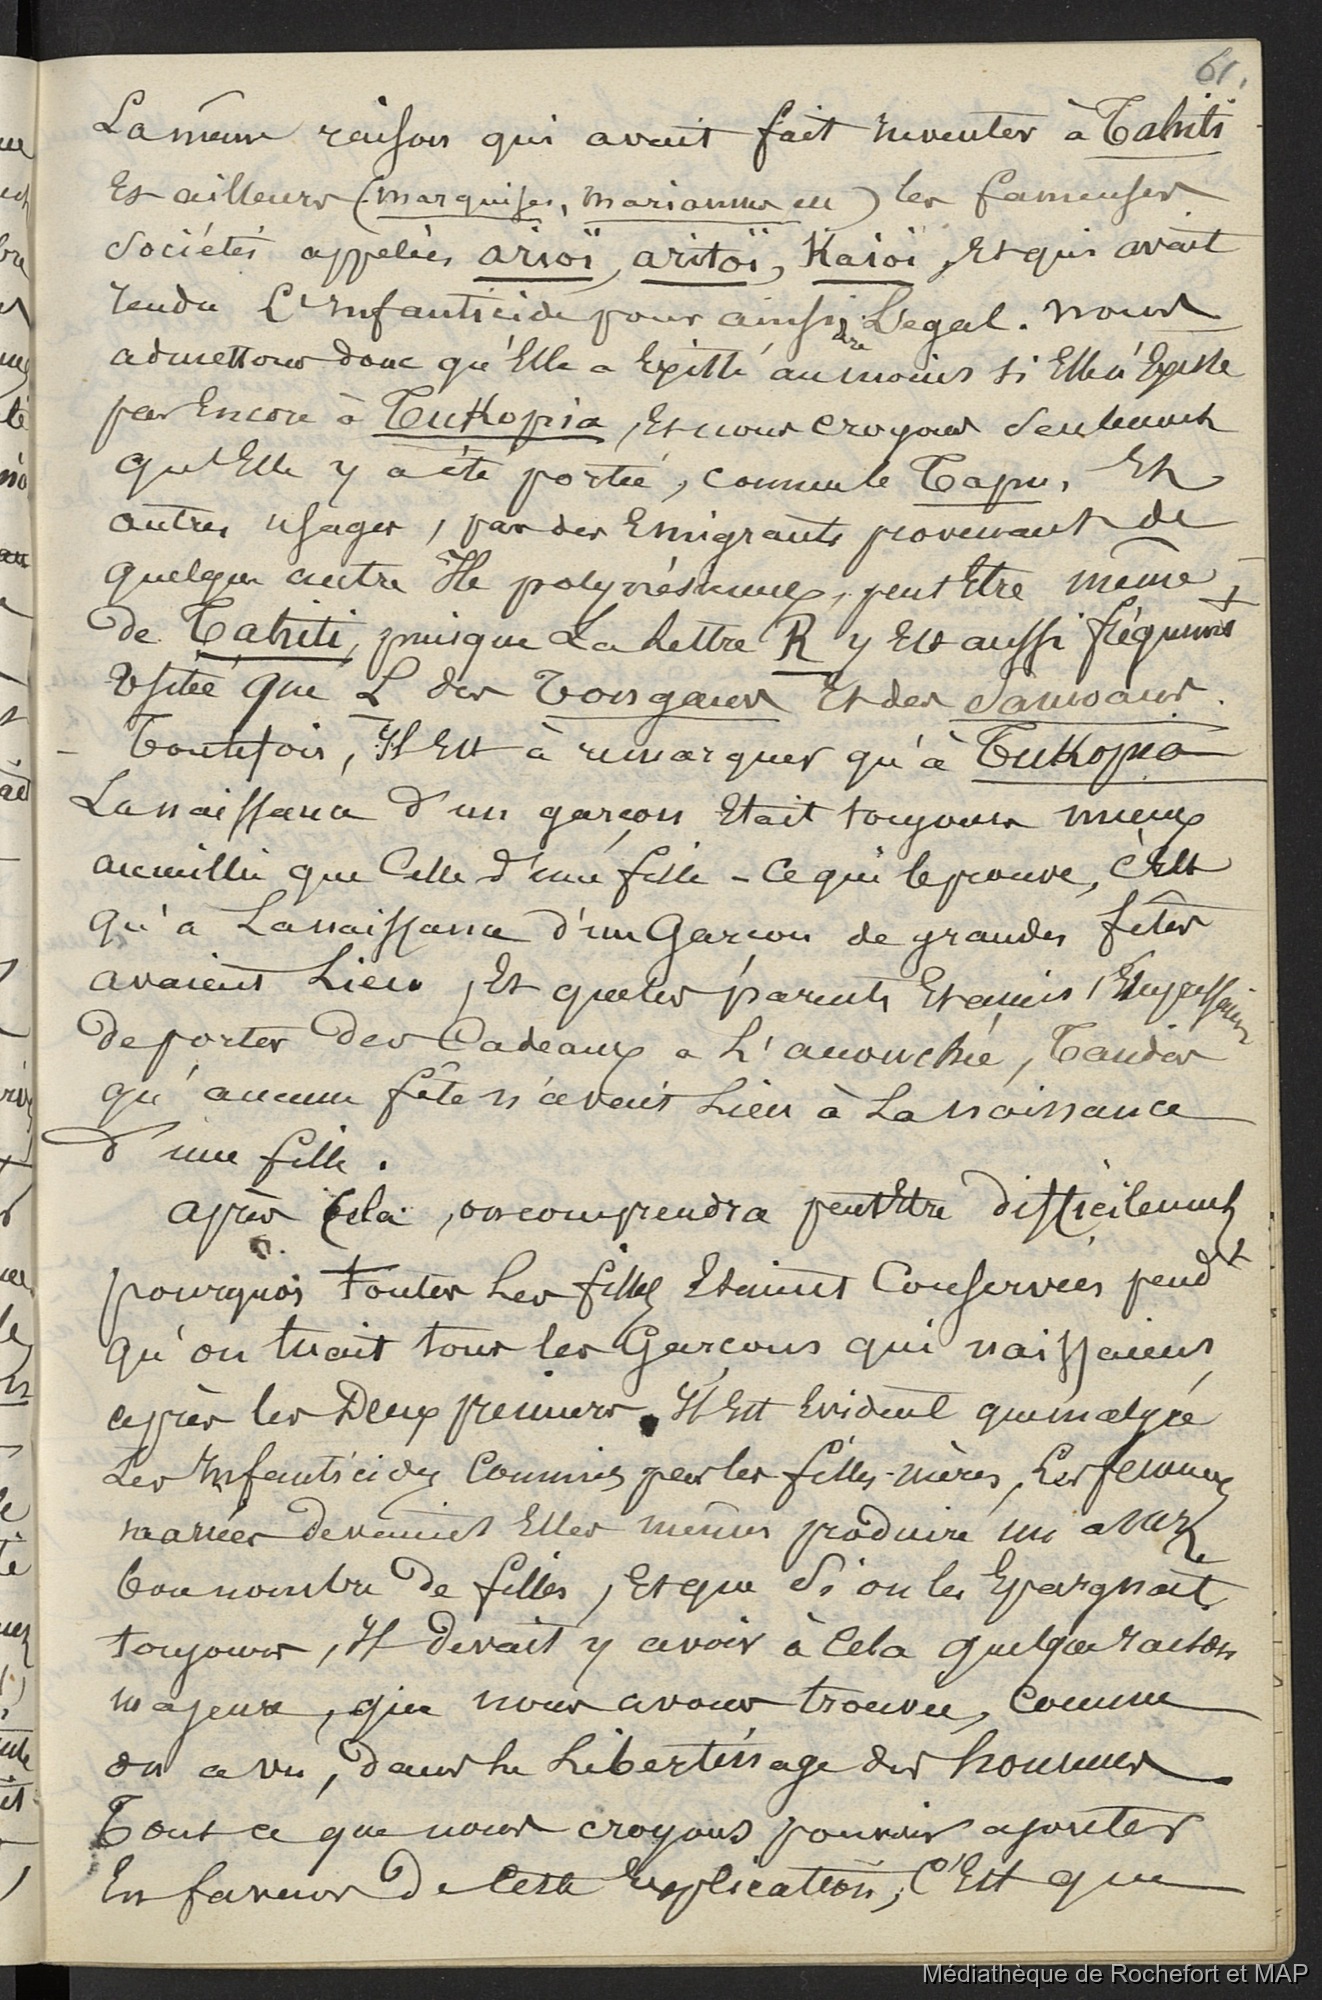 61.
La même raison qui avait fait inventer à Tahiti
Et ailleurs (marquises, mariannes &&) les fameuses
Sociétés appelées arioï, aritoï, Kaioï, Et qui avait
rendu L'Infanticide pour ainsi dire Légal. nous
admettons donc qu'Elle a Existé au moins si Elle n'Existe
pas Encore à Tukopia, Et nous croyons Seulement
qu'Elle y a été portée, comme le Tapu, Et
autres usages, par des Emigrants provenant de
quelque autre Ile polynésienne, peut Etre même
de Tahiti, puisque La Lettre R y Est aussi fréquemt
Usitée que L des Tongans Et des Samoans.
- Toutefois, Il Est à remarquer qu'à Tukopia
La naissance d'un garçon Etait toujours mieux
accueillie que Celle d'une fille - Ce qui le prouve, c'Est
qu'a La naissance d'un Garçon de grandes fêtes
avaient Lieu, Et que les parents Et amis
de porter des Cadeaux a L'accouchée, Tandis
qu'aucune fête n'avait Lieu à La naissance
d'une fille.
après Cela, on comprendra peut Etre difficilement
pourquoi toutes Les filles Etaient Conservées pendt
qu'on tuait tous les Garçons qui naissaient
après les Deux premiers. Il Est Evident que malgré
Les Infanticides Commis par les filles-mères, Les femmes
mariées devaient Elles mêmes produire un assez
bon nombre de filles, Et que Si on les Epargnait
toujours, Il devait y avoir à Cela quelque raison
majeure, que nous avons trouvée, Comme
on a vu, dans Le Libertinage des hommes.
Tout ce que nous croyons pouvoir ajouter
En faveur de Cette Explication, C'Est que
Médiathèque de Rochefort et MAP